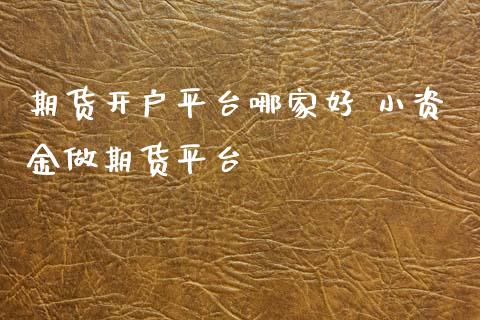 期货开户平台哪家好 小资
金做期货平台